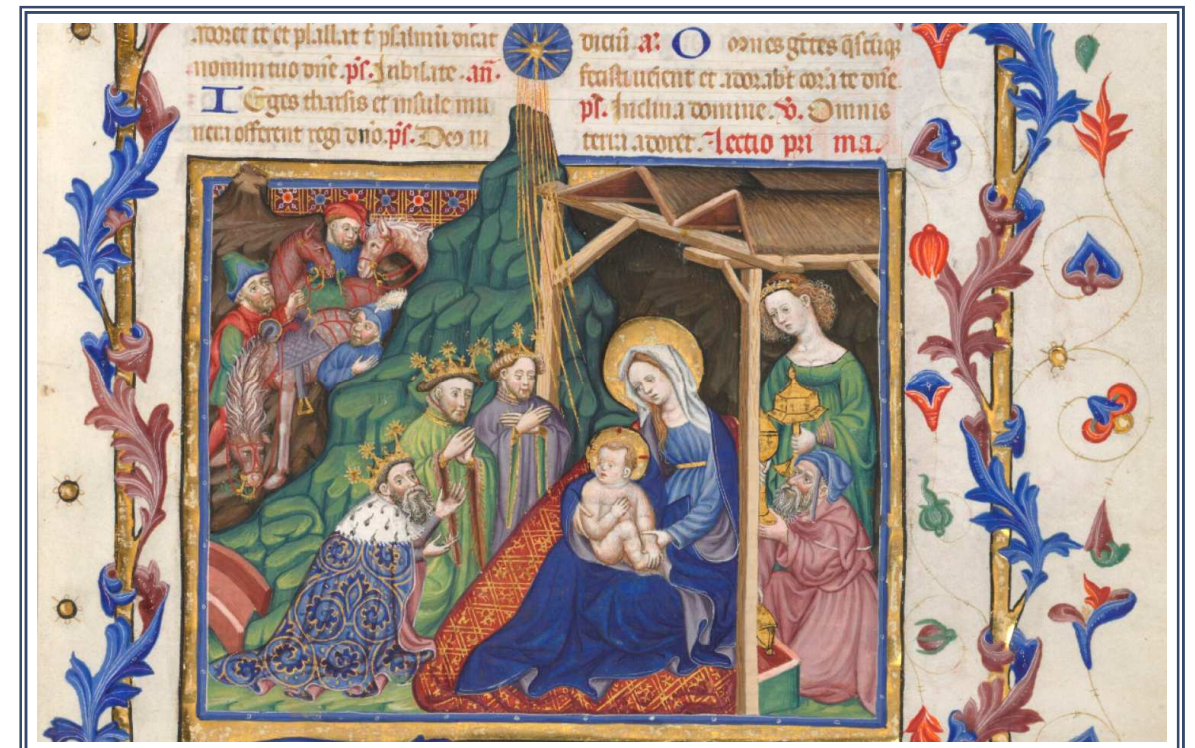 adoret te et psallat t̄ psalmū dicat
nomini tuo dn̄e .ps̄. Iubilate .an̄.
Reges tharsis et insule mu
nera offerent regi dn̄o .ps̄. Deus iu
diciū a: Omnes gētes q̄scūq;
fecisti uenient et adorabt̄ corā te dn̄e.
ps̄. Inclina domine. V. Omnis
terra adoret. Lectio pri ma.